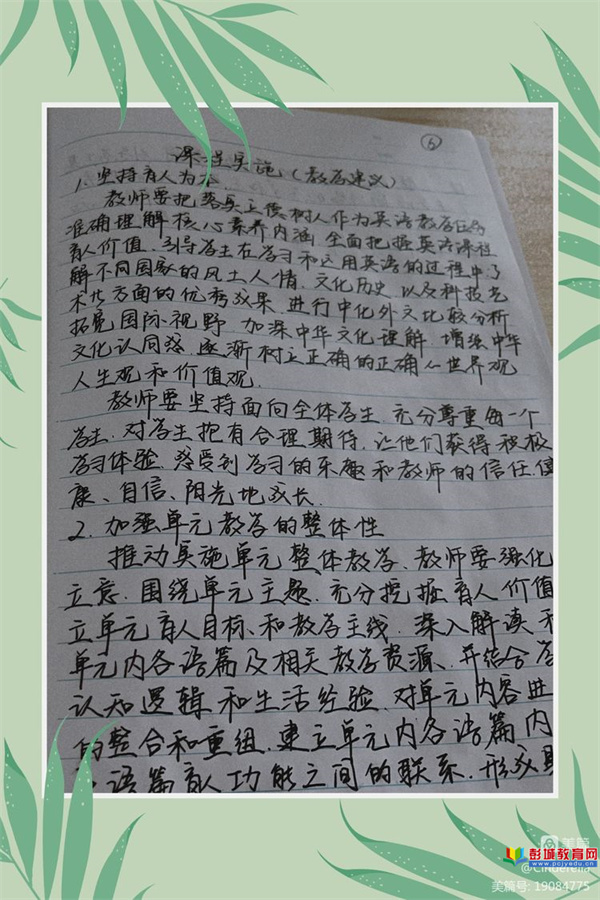 6
课程实施(教学建议)
1. 坚持育人为本.
教师要把落实立德树人作为英语教学任务
准确理解核心素养内涵,全面把握英语课程
育人价值.引导学生在学习和运用英语的过程中了
解不同国家的风土人情.文化历史.以及科技艺
术等方面的优秀成果.进行中化外文比较分析
拓宽国际视野.加深中华文化理解.增强中华
文化认同感.逐渐树立正确的正确的世界观
人生观和价值观.
教师要坚持面向全体学生.充分尊重每一个
学生.对学生抱有合理期待.让他们获得积极
学习体验.感受到学习的乐趣和教师的信任健
康、自信、阳光地成长.
2. 加强单元教学的整体性
推动实施单元整体教学.教师要强化
立意.围绕单元主题.充分挖掘育人价值
立单元育人目标、和教学主线.深入解读和
单元内各语篇及相关教学资源、并结合学
认知逻辑和生活经验.对单元内容进
的整合和重组.建立单元内各语篇内
语篇育人功能之间的联系.形成
美篇
彭城教育网
www.pcjyedu.cn
@Cinderella
美篇号: 19084775